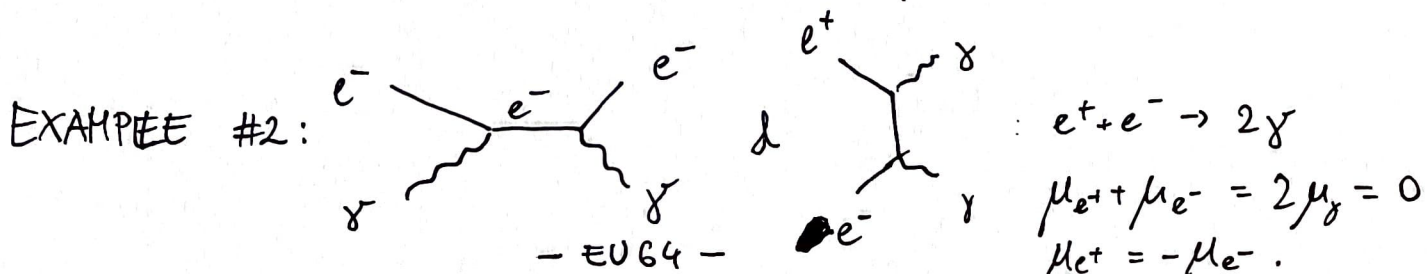 EXAMPLE #2:
e⁻ e⁻ e⁻ γ γ
&
e⁺ γ e⁻ γ
: e⁺ + e⁻ → 2γ
μe⁺ + μe⁻ = 2μγ = 0
μe⁺ = -μe⁻.
- EU64 -